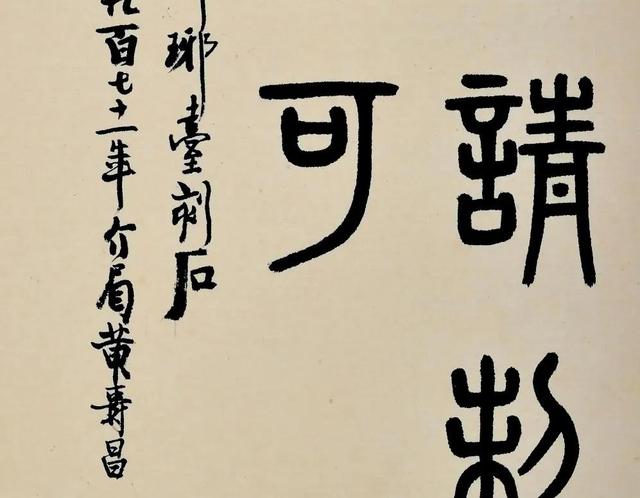 請制
可
琊臺刻石
百七十一年介眉黃壽昌